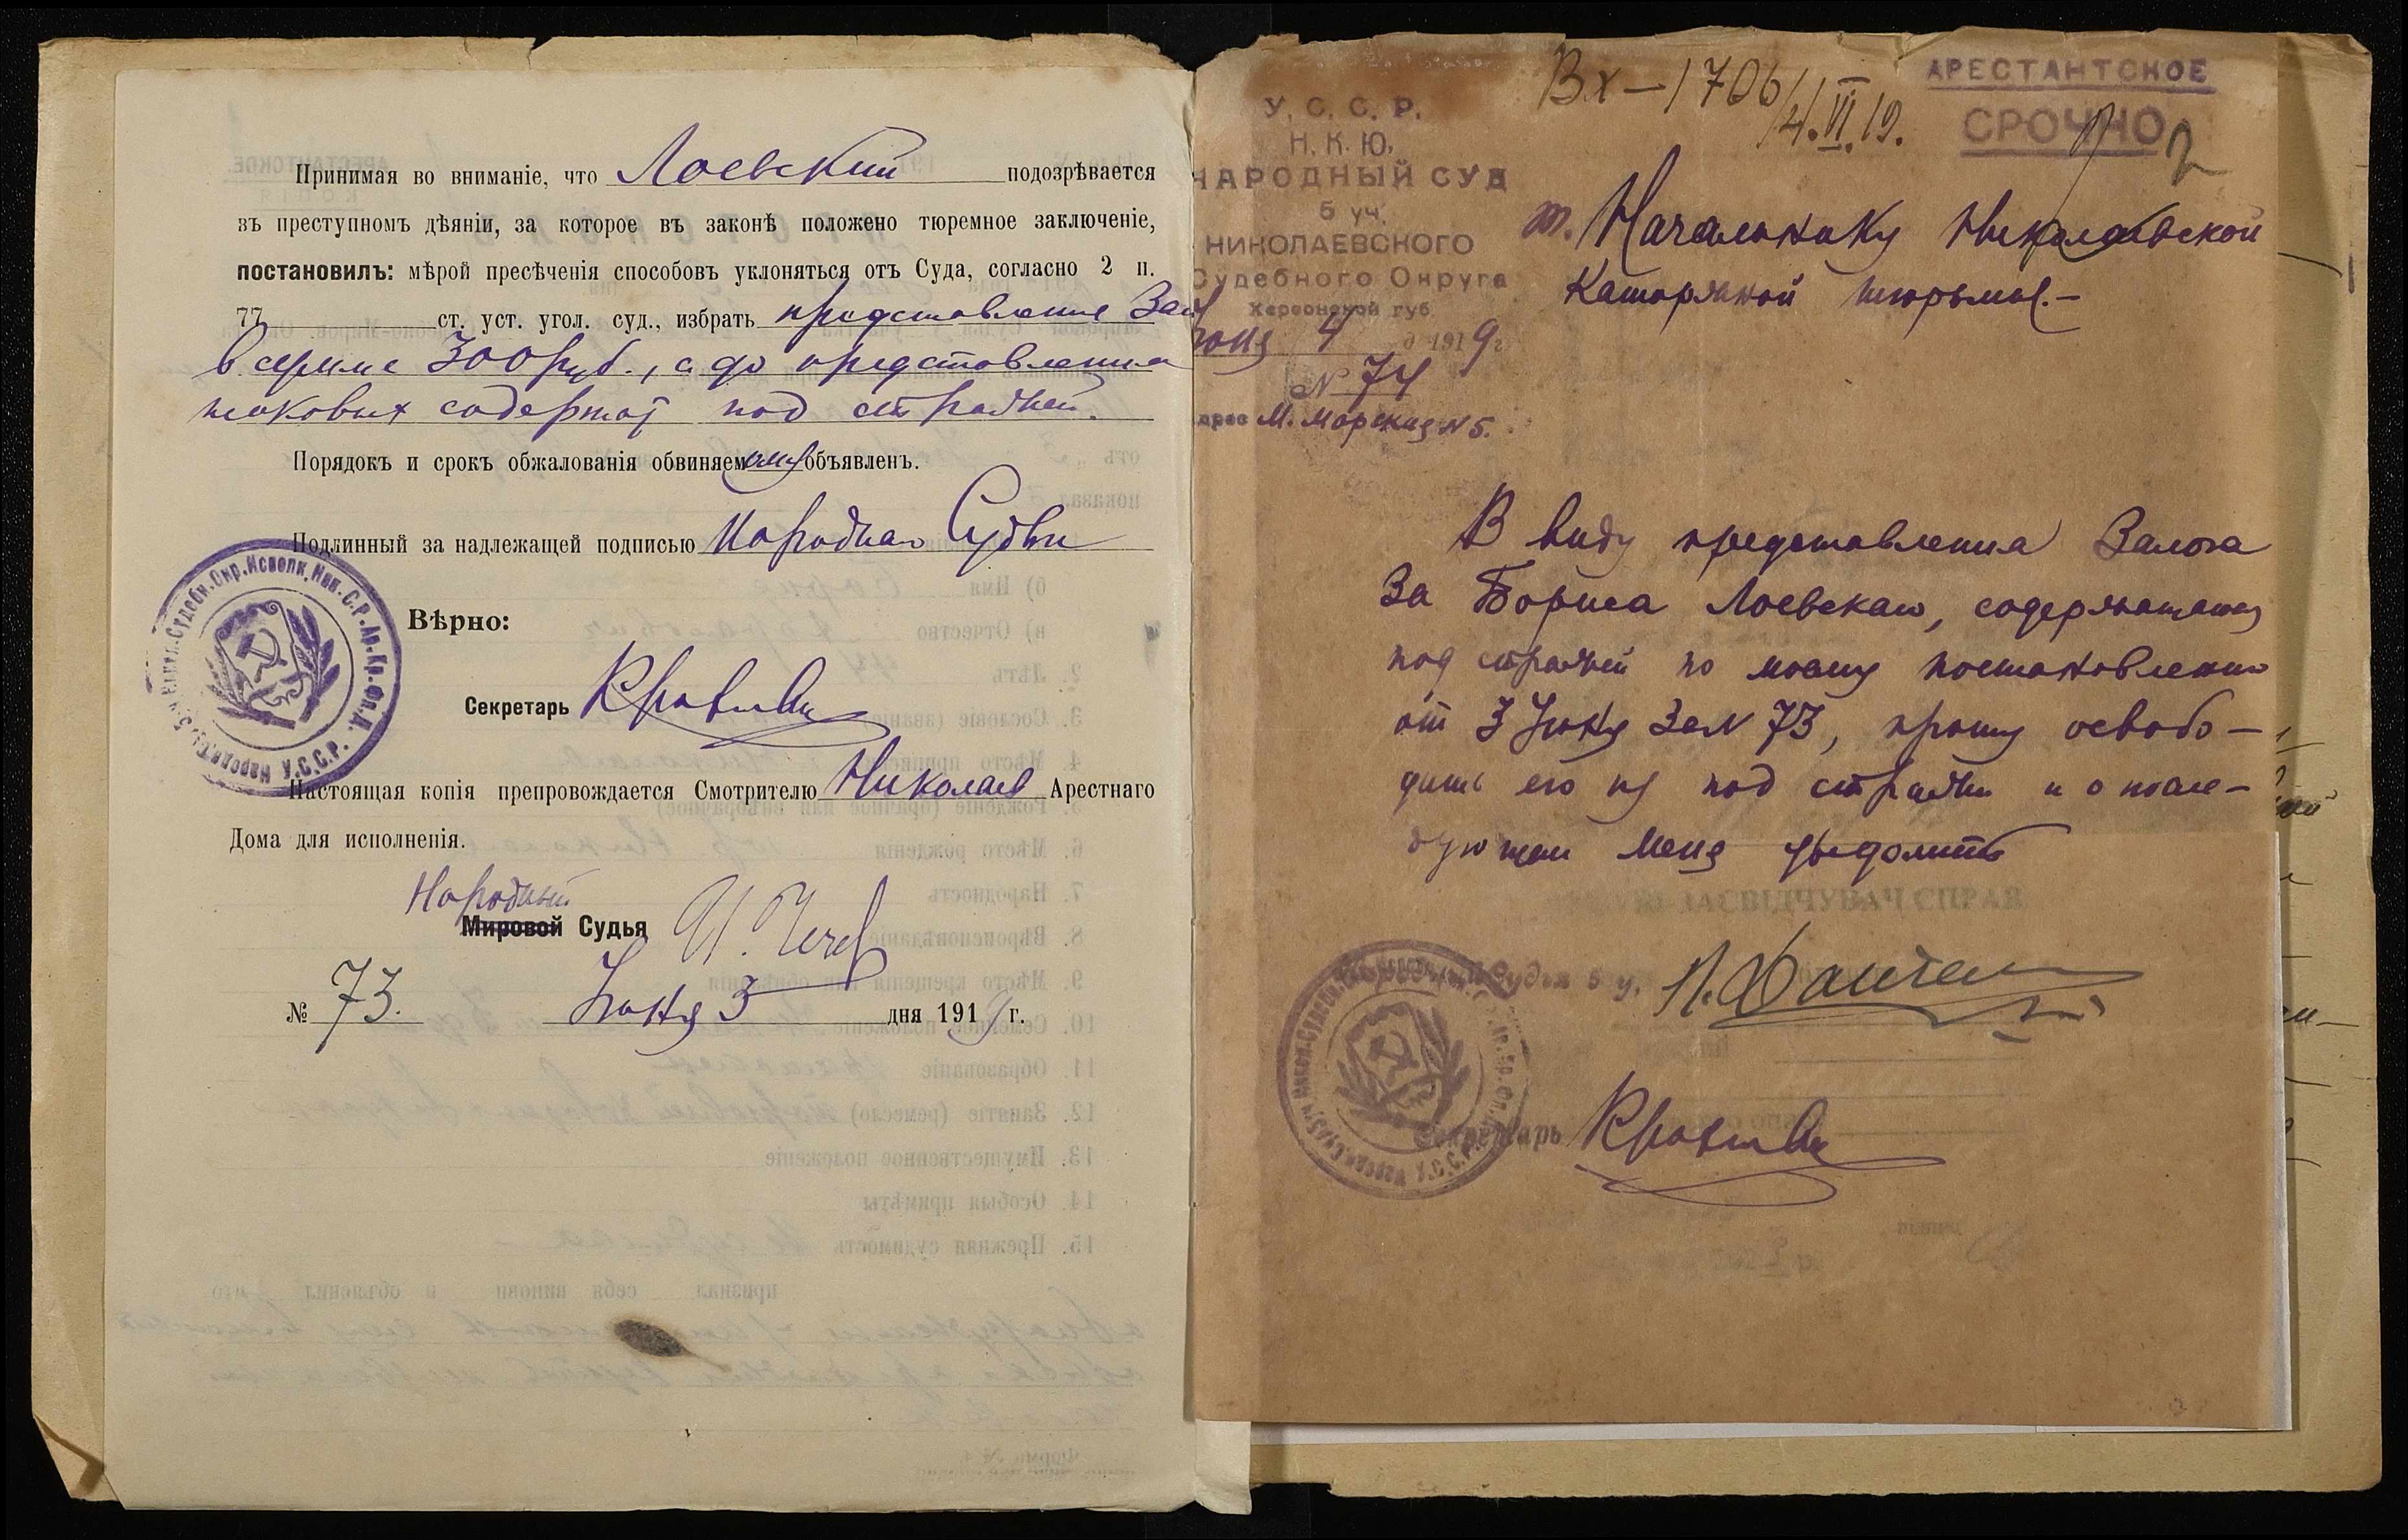 Принимая во вниманіе, что Лоевский подозрѣвается
въ преступномъ дѣяніи, за которое въ законѣ положено тюремное заключеніе,
постановилъ: мѣрой пресѣченія способовъ уклоняться отъ Суда, согласно 2 п.
77 ст. уст. угол. суд., избрать представление Зал
в сумме 300 руб., а до представления
таковых содержат под стражей.
Порядокъ и срокъ обжалованія обвиняемому объявленъ.
Подлинный за надлежащей подписью Народнаго Судьи
Вѣрно:
Секретарь
Настоящая копія препровождается Смотрителю Николаев Арестнаго
Дома для исполненія.
Народный
Мировой Судья
№ 73. Июня 3 дня 1919 г.
Вх-1706/4.VI.19.
АРЕСТАНТСКОЕ
СРОЧНО
2
У. С. С. Р.
Н. К. Ю.
НАРОДНЫЙ СУД
5 уч.
НИКОЛАЕВСКОГО
Судебного Округа
Херсонской губ.
юня 4 д 1919 г.
№ 74
дрес М. Морская № 5.
т. Начальнику Николаевской
Каторжной тюрьмы.-
В виду представления Залога
За Бориса Лоевскаго, содержащагося
под стражей по моему постановлению
от 3 Июня За № 73, прошу освобо-
дить его из под стражи и о после-
дующем меня уведомить
ЗАСВІДЧУВАЧ СПРАВ
Судья 5 у.
Секретарь